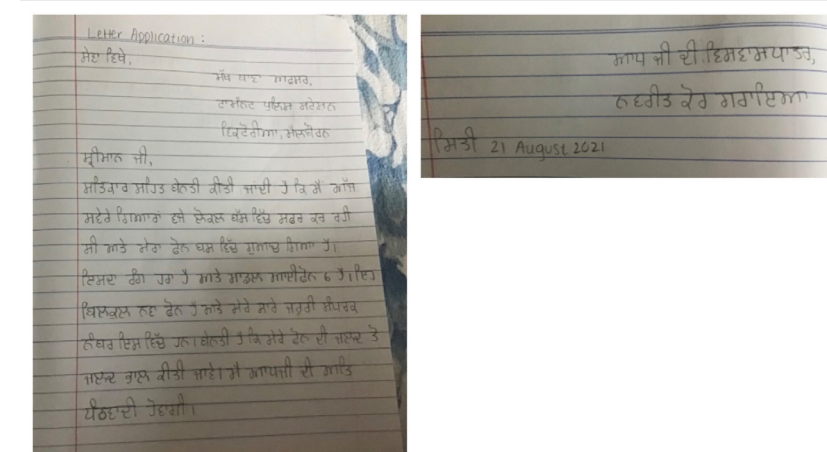 Letter Application :
ਸੇਵਾ ਵਿਖੇ,
ਮੁੱਖ ਥਾਣਾ ਅਫਸਰ,
ਪੁਲਿਸ ਸਟੇਸ਼ਨ
ਵਿਕਟੋਰੀਆ, ਮੈਲਬੋਰਨ
ਸ਼੍ਰੀਮਾਨ ਜੀ,
ਸਤਿਕਾਰ ਸਹਿਤ ਬੇਨਤੀ ਕੀਤੀ ਜਾਂਦੀ ਹੈ ਕਿ ਮੈਂ ਅੱਜ
ਸਵੇਰੇ ਗਿਆਰਾਂ ਵਜੇ ਲੋਕਲ ਬੱਸ ਵਿੱਚ ਸਫਰ ਕਰ ਰਹੀ
ਸੀ ਅਤੇ ਮੇਰਾ ਫੋਨ ਬਸ ਵਿੱਚ ਗੁਆਚ ਗਿਆ ਹੈ।
ਇਸਦਾ ਰੰਗ ਹਰਾ ਹੈ ਅਤੇ ਮਾਡਲ ਆਈਫੋਨ 6 ਹੈ। ਇਹ
ਬਿਲਕੁਲ ਨਵਾ ਫੋਨ ਹੈ ਅਤੇ ਮੇਰੇ ਸਾਰੇ ਜਰੂਰੀ ਸੰਪਰਕ
ਨੰਬਰ ਇਸ ਵਿੱਚ ਹਨ। ਬੇਨਤੀ ਹੈ ਕਿ ਮੇਰੇ ਫੋਨ ਦੀ ਜਲਦ ਤੋ
ਜਲਦ ਭਾਲ ਕੀਤੀ ਜਾਵੇ। ਮੈਂ ਆਪਜੀ ਦੀ ਅਤਿ
ਧੰਨਵਾਦੀ ਹੋਵਾਂਗੀ।
ਆਪ ਜੀ ਦੀ ਵਿਸਵਾਸਪਾਤਰ,
ਨਵਰੀਤ ਕੌਰ ਗਰਾਇਆ
ਮਿਤੀ 21 August 2021